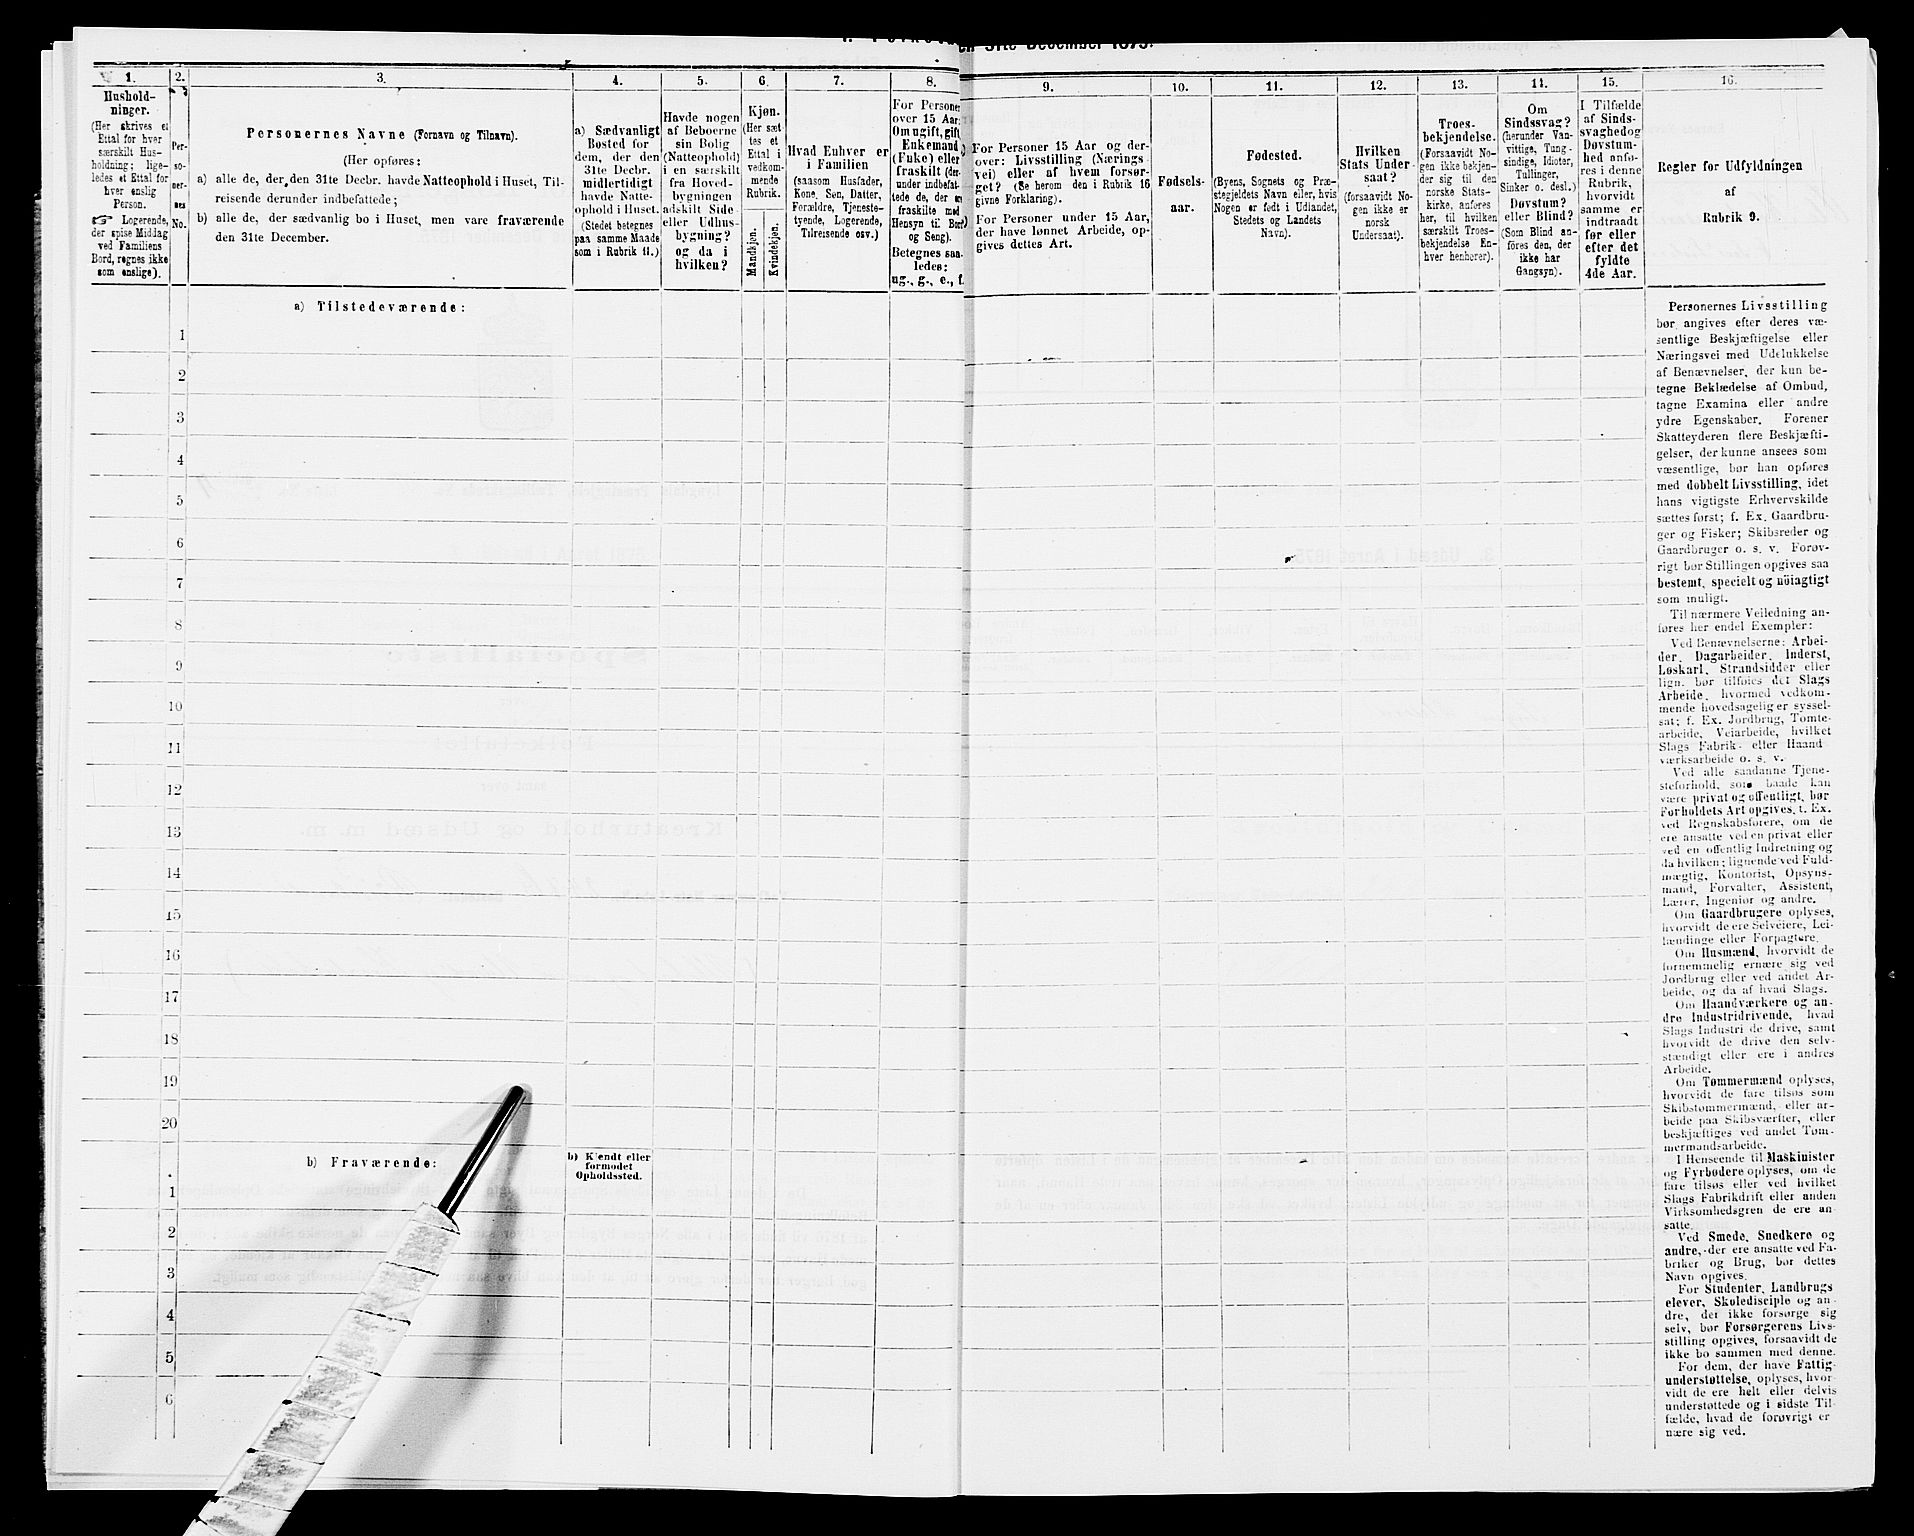 31te December 1875.
1.
Hushold-
ninger.
(Her skrives et
Ettal for hver
særskilt Hus-
holdning; lige-
ledes et Ettal for
hver enslig
Person.
☞ Logerende,
der spise Middag
ved Familiens
Bord, regnes ikke
som enslige).
2.
Per-
so-
ner-
nes
No.
3.
Personernes Navne (Fornavn og Tilnavn).
(Her opføres:
a) alle de, der den 31te Decbr. havde Natteophold i Huset, Til-
reisende derunder indbefattede;
b) alle de, der sædvanlig bo i Huset, men vare fraværende
den 31te December.
4.
a) Sædvanligt
Bosted for
dem, der den
31te Decbr.
midlertidigt
havde Natte-
ophold i Huset.
(Stedet betegnes
paa samme Maade
som i Rubrik 11.)
5.
Havde nogen
af Beboerne
sin Bolig
(Natteophold)
i en særskilt
fra Hoved-
bygningen
adskilt Side-
eller Udhus-
bygning?
og da i
hvilken?
6.
Kjøn.
(Her sæt-
tes et
Ettal i
vedkom-
mende
Rubrik.
Mandkjøn.
Kvindekjøn.
7.
Hvad Enhver er
i Familien
(saasom Husfader,
Kone, Søn, Datter,
Forældre, Tjeneste-
tyende, Logerende,
Tilreisende osv.)
8.
For Personer
over 15 Aar:
Om ugift, gift,
Enkemand
(Enke) eller
fraskilt (der-
under indbefat-
tede de, der er
fraskilte med
Hensyn til Bord
og Seng).
Betegnes saa-
ledes:
ug., g., e., f.
9.
For Personer 15 Aar og der-
over: Livsstilling (Nærings
vei) eller af hvem forsør-
get? (Se herom den i Rubrik 16
givne Forklaring).
For Personer under 15 Aar,
der have lønnet Arbeide, op-
gives dettes Art.
10.
Fødsels-
aar.
11.
Fødested.
(Byens, Sognets og Præ-
stegjeldets Navn eller, hvis
Nogen er født i Udlandet,
Stedets og Landets
Navn).
12.
Hvilken
Stats Under-
saat?
(forsaavidt No-
gen ikke er
norsk
Undersaat).
13.
Troes-
bekjendelse.
(Forsaavidt No-
gen ikke bekjen-
der sig til den
norske Stats-
kirke, anføres
her, til hvilken
særskilt Troes-
bekjendelse En-
hver henhører).
14.
Om
Sindssvag?
(herunder Van-
vittige, Tung-
sindige, Idioter,
Tullinger,
Sinker o. desl.)
Døvstum?
eller Blind?
(Som Blind an-
føres den, der
ikke har
Gangsyn).
15.
I Tilfælde
af Sinds-
svaghed og
Døvstum-
hed anfø-
res i denne
Rubrik,
hvorvidt
samme er
indtraadt
før eller
efter det
fyldte
4de Aar.
16.
Regler for Udfyldningen
af
Rubrik 9.
a) Tilstedeværende:
1
2
3
4
5
6
7
8
9
10
11
12
13
14
15
16
17
18
19
20
b) Fraværende:
b) Kjendt eller
formodet
Opholdssted.
1
2
3
4
5
6
Personernes Livsstilling
bør angives efter deres væ-
sentlige Beskjæftigelse eller
Næringsvei med Udelukkelse
af Benævnelser, der kun be-
tegne Beklædelse af Ombud,
tagne Examina eller andre
ydre Egenskaber. Forener
Skatteyderen flere Beskjæfti-
gelser, der kunne ansees som
væsentlige, bør han opføres
med dobbelt Livsstilling, idet
hans vigtigste Erhvervskilde
sættes først; f. Ex. Gaardbru-
ger og Fisker; Skibsreder og
Gaardbruger o. s. v. Forøv-
rigt bør Stillingen opgives saa
bestemt, specielt og nøiagtigt
som muligt.
Til nærmere Veiledning an-
føres her endel Exempler:
Ved Benævnelserne: Arbei-
der, Dagarbeider, Inderst,
Løskarl, Strandsidder eller
lign. bør tilføies det Slags
Arbeide, hvormed vedkom-
mende hovedsagelig er syssel-
sat; f. Ex. Jordbrug, Tomte-
arbeide, Veiarbeide, hvilket
Slags Fabrik- eller Haand
værksarbeide o. s. v.
Ved alle saadanne Tjene-
steforhold, som baade kan
være privat og offentligt, bør
Forholdets Art opgives, f. Ex.
ved Regnskabsførere, om de
ere ansatte ved en privat eller
ved en offentlig Indretning og
da hvilken; lignende ved Fuld-
mægtig, Kontorist, Opsyns-
mand, Forvalter, Assistent,
Lærer, Ingeniør og andre.
Om Gaardbrugere oplyses,
hvorvidt de ere Selveiere, Lei-
lændinge eller Forpagtere.
Om Husmænd, hvorvidt de
fornemmelig ernære sig ved
Jordbrug eller ved andet Ar-
beide, og da af hvad Slags.
Om Haandværkere og an-
dre Industridrivende, hvad
Slags Industri de drive, samt
hvorvidt de drive den selv-
stændigt eller ere i andres
Arbeide.
Om Tømmermænd oplyses,
hvorvidt de fare tilsøs som
Skibstømmermænd, eller ar-
beide paa Skibsværfter, eller
beskjæftiges ved andet Tøm-
mermandsarbeide.
I Henseende til Maskinister
og Fyrbødere oplyses, om de
fare tilsøs eller ved hvilket
Slags Fabrikdrift eller anden
Virksomhedsgren de ere an-
satte.
Ved Smede, Snedkere og
andre, der ere ansatte ved Fa-
briker og Brug, bør dettes
Navn opgives.
For Studenter, Landbrugs
elever, Skoledisciple og an-
dre, der ikke forsørge sig
selv, bør Forsørgerens Livs-
stilling opgives, forsaavidt de
ikke bo sammen med denne.
For dem, der have Fattig-
understøttelse, oplyses, hvor-
vidt de ere helt eller delvis
understøttede og i sidste Til-
fælde, hvad de forøvrigt er
nære sig ved.